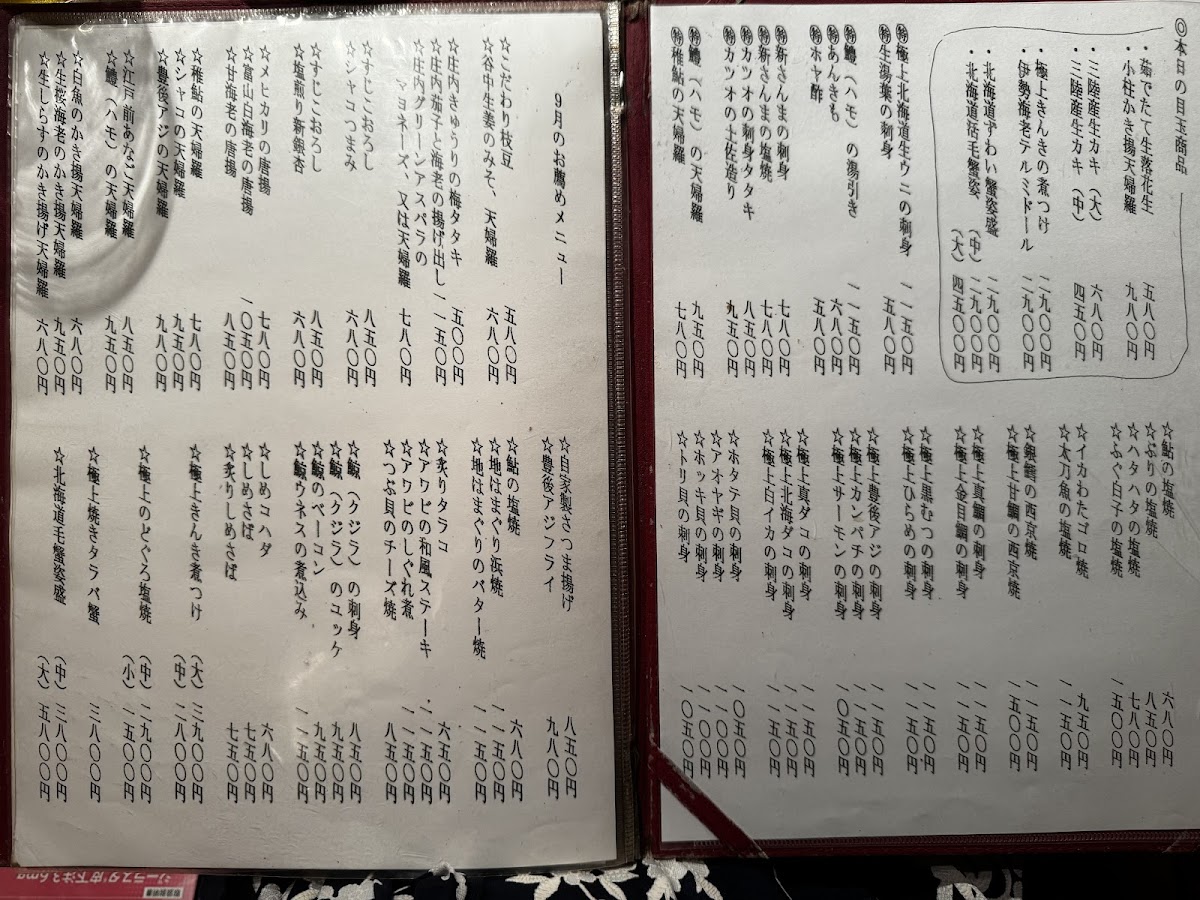 ◎本日の目玉商品
・茹でたて生落花生 五八〇円
・小柱かき揚天婦羅 九八〇円
・三陸産生カキ（大） 六八〇円
・三陸産生カキ（中） 四五〇円
・極上きんきの煮つけ 二九〇〇円
・伊勢海老テルミドール 二九〇〇円
・北海道ずわい蟹姿盛（中）二九〇〇円
・北海道活毛蟹姿、（大）四五〇〇円
㊕極上北海道生ウニの刺身 一一五〇円
㊕生湯葉の刺身 五八〇円
㊕鱧（ハモ）の湯引き 一一五〇円
㊕あんきも 六八〇円
㊕ホヤ酢 五八〇円
㊕新さんまの刺身 七八〇円
㊕新さんまの塩焼 七八〇円
㊕カツオの刺身タタキ 八五〇円
㊕カツオの土佐造り 九五〇円
㊕鱧（ハモ）の天婦羅 九五〇円
㊕稚鮎の天婦羅 七八〇円
☆鮎の塩焼 六八〇円
☆ぶりの塩焼 八五〇円
☆ハタハタの塩焼 七八〇円
☆ふぐ白子の塩焼 一五〇〇円
☆イカわたゴロ焼 九五〇円
☆太刀魚の塩焼 一一五〇円
☆銀鱈の西京焼 一一五〇円
☆極上甘鯛の西京焼 一五〇〇円
☆極上真鯛の刺身 一一五〇円
☆極上金目鯛の刺身 一一五〇円
☆極上黒むつの刺身 一一五〇円
☆極上ひらめの刺身 一一五〇円
☆極上豊後アジの刺身 一一五〇円
☆極上カンパチの刺身 一一五〇円
☆極上サーモンの刺身 一〇五〇円
☆極上真ダコの刺身 一一五〇円
☆極上北海ダコの刺身 一一五〇円
☆極上白イカの刺身 一一五〇円
☆ホタテ貝の刺身 一〇五〇円
☆アオヤギの刺身 一一〇〇円
☆ホッキ貝の刺身 一一〇〇円
☆トリ貝の刺身 一〇五〇円
９月のお薦めメニュー
☆こだわり枝豆 五八〇円
☆谷中生姜のみそ、天婦羅 六八〇円
☆庄内きゅうりの梅タタキ 五〇〇円
☆庄内茄子と海老の揚げ出し 一一五〇円
☆庄内グリーンアスパラの
マヨネーズ、又は天婦羅 七八〇円
☆すじこおろし 八五〇円
☆シャコつまみ 六八〇円
☆すじこおろし 八五〇円
☆塩煎り新銀杏 六八〇円
☆メヒカリの唐揚 七八〇円
☆富山白海老の唐揚 一〇五〇円
☆甘海老の唐揚 八五〇円
☆稚鮎の天婦羅 七八〇円
☆シャコの天婦羅 九五〇円
☆豊後アジの天婦羅 九八〇円
☆江戸前あなご天婦羅 八五〇円
☆鱧（ハモ）の天婦羅 九五〇円
☆白魚のかき揚天婦羅 六八〇円
☆生桜海老のかき揚天婦羅 九五〇円
☆生しらすのかき揚げ天婦羅 六八〇円
☆自家製さつま揚げ 八五〇円
☆豊後アジフライ 九八〇円
☆鮎の塩焼 六八〇円
☆地はまぐり浜焼 一一五〇円
☆地はまぐりのバター焼 一一五〇円
☆炙りタラコ 六五〇円
☆アワビの和風ステーキ 一一五〇円
☆アワビのしぐれ煮 一一五〇円
☆つぶ貝のチーズ焼 八五〇円
☆鯨（クジラ）の刺身 八五〇円
☆鯨（クジラ）のユッケ 九五〇円
☆鯨のベーコン 九五〇円
☆鯨ウネスの煮込み 一一五〇円
☆しめコハダ 六八〇円
☆しめさば 七五〇円
☆炙りしめさば 七五〇円
☆極上きんき煮つけ（大）三九〇〇円
（中）二八〇〇円
☆極上のどぐろ塩焼（中）二九〇〇円
（小）一五〇〇円
☆極上焼きタラバ蟹 三八〇〇円
☆北海道毛蟹姿盛（中）三八〇〇円
（大）五八〇〇円
ジーラスタ®皮下注3.6mg
取扱説明書